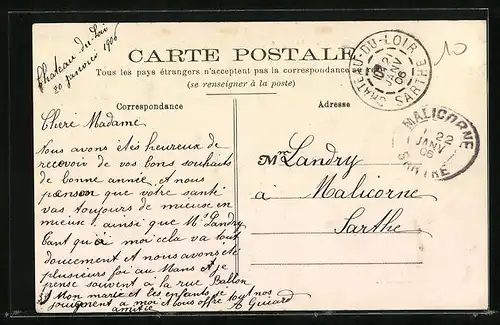 Chateau du Loir
20 Janvier 1906
CARTE POSTALE
Tous les pays étrangers n'acceptent pas la correspondance au
(se renseigner à la poste)
CHATEAU-DU-LOIR
21
JANV
06
SARTHE
10
MALICORNE
22
JANV
06
SARTHE
Correspondance
Adresse
Cheri Madame
Nous avons étés heureux de
recevoir de vos bons souhaits
de bonne année et nous
penson que votre santé
vas toujours de mieuse en
mieuse ainsi que Mr Landry
tant qu'a moi cela va tout
doucement et nous avons été
plusieurs foi au Mans et je
pense souvent a la rue Ballon
Mon marie et les enfants se
joingnent a moi et vous offre nos
amitié
Guiard
Mme Landry
à Malicorne
Sarthe